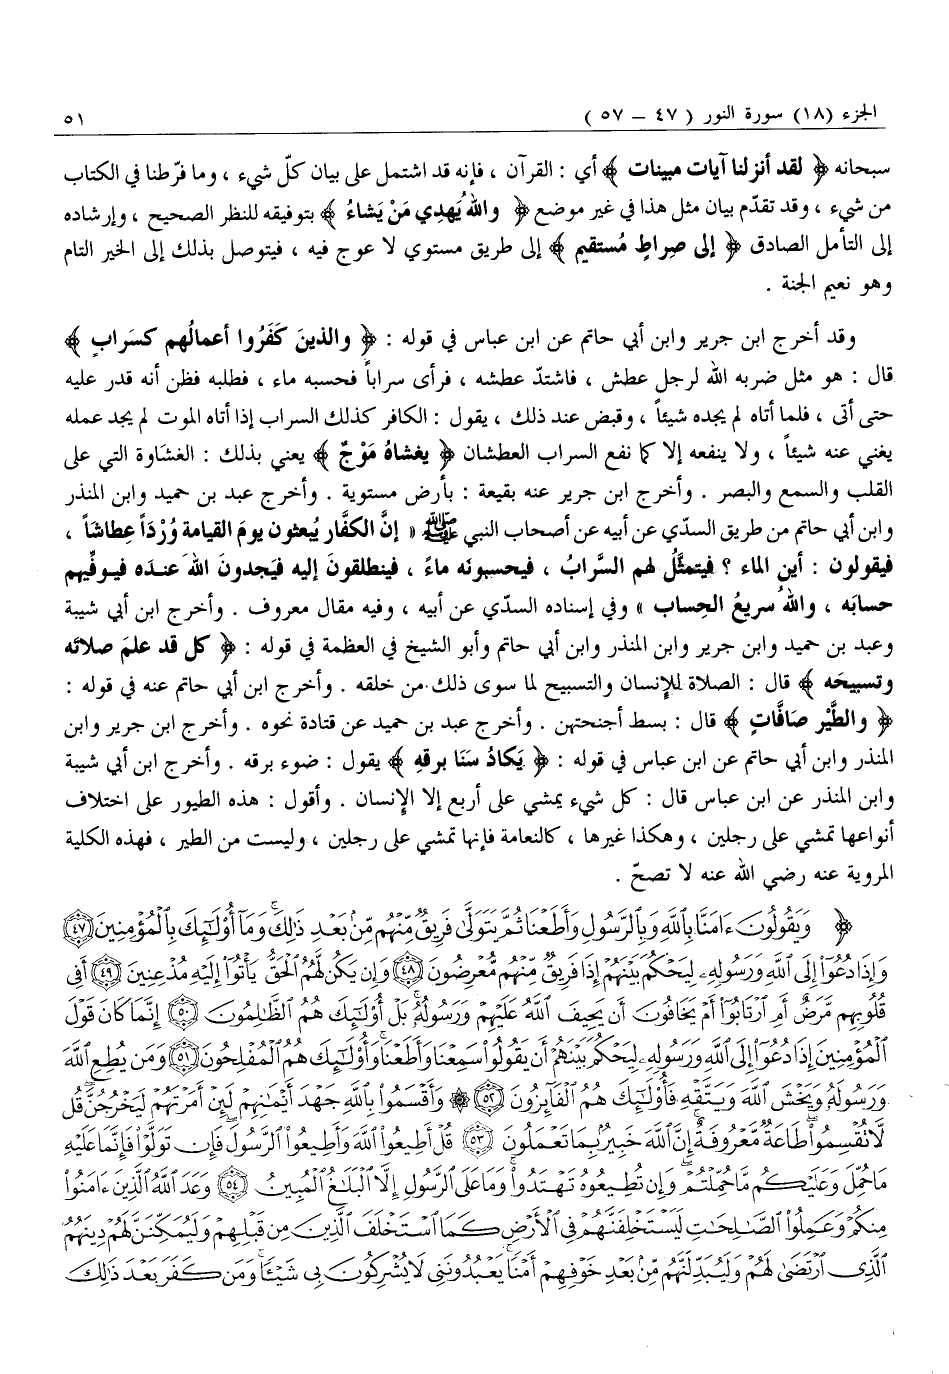 الجزء (١٨) سورة النور ( ٤٧ – ٥٧ ) ٥١
سبحانه ﴿ لقد أنزلنا آيات مبينات ﴾ أي : القرآن ، فإنه قد اشتمل على بيان كلّ شيء ، وما فرّطنا في الكتاب
من شيء ، وقد تقدّم بيان مثل هذا في غير موضع ﴿ واللهُ يَهدِي مَنْ يَشاءُ ﴾ بتوفيقه للنظر الصحيح ، وإرشاده
إلى التأمل الصادق ﴿ إلى صِراطٍ مُستقيم ﴾ إلى طريق مستوي لا عوج فيه ، فيتوصل بذلك إلى الخير التام
وهو نعيم الجنة .
وقد أخرج ابن جرير وابن أبي حاتم عن ابن عباس في قوله : ﴿ والذينَ كَفَرُوا أعمالُهم كسَرابٍ ﴾
قال : هو مثل ضربه الله لرجل عطش ، فاشتدّ عطشه ، فرأى سراباً فحسبه ماء ، فطلبه فظن أنه قدر عليه
حتى أتى ، فلما أتاه لم يجده شيئاً ، وقبض عند ذلك ، يقول : الكافر كذلك السراب إذا أتاه الموت لم يجد عمله
يغني عنه شيئاً ، ولا ينفعه إلا كما نفع السراب العطشان ﴿ يغشاهُ مَوْجٌ ﴾ يعني بذلك : الغشاوة التي على
القلب والسمع والبصر . وأخرج ابن جرير عنه بقيعة : بأرض مستوية . وأخرج عبد بن حميد وابن المنذر
وابن أبي حاتم من طريق السدّي عن أبيه عن أصحاب النبي ﷺ « إنَّ الكفَّار يُبعثون يومَ القيامة وُرْداً عِطاشاً ،
فيقولون : أين الماء ؟ فيتمثَّلُ لهم السَّرابُ ، فيحسبونَه ماءً ، فينطلقونَ إليه فيَجدونَ اللهَ عنده فيوفِّيهم
حسابَه ، واللهُ سريعُ الحِساب » وفي إسناده السدّي عن أبيه ، وفيه مقال معروف . وأخرج ابن أبي شيبة
وعبد بن حميد وابن جرير وابن المنذر وابن أبي حاتم وأبو الشيخ في العظمة في قوله : ﴿ كل قد علمَ صلاتَه
وتسبيحَه ﴾ قال : الصلاة للإنسان والتسبيح لما سوى ذلك من خلقه . وأخرج ابن أبي حاتم عنه في قوله :
﴿ والطَّيْر صَافَّاتٍ ﴾ قال : بسط أجنحتهن . وأخرج عبد بن حميد عن قتادة نحوه . وأخرج ابن جرير وابن
المنذر وابن أبي حاتم عن ابن عباس في قوله : ﴿ يَكادُ سَنَا برقهِ ﴾ يقول : ضوء برقه . وأخرج ابن أبي شيبة
وابن المنذر عن ابن عباس قال : كل شيء يمشي على أربع إلا الإنسان . وأقول : هذه الطيور على اختلاف
أنواعها تمشي على رجلين ، وهكذا غيرها ، كالنعامة فإنها تمشي على رجلين ، وليست من الطير ، فهذه الكلية
المروية عنه رضي الله عنه لا تصحّ .
﴿ وَيَقُولُونَ ءَامَنَّا بِٱللَّهِ وَبِٱلرَّسُولِ وَأَطَعْنَا ثُمَّ يَتَوَلَّىٰ فَرِيقٌ مِّنْهُم مِّنۢ بَعْدِ ذَٰلِكَ ۚ وَمَآ أُو۟لَـٰٓئِكَ بِٱلْمُؤْمِنِينَ ﴿٤٧﴾
وَإِذَا دُعُوٓا۟ إِلَى ٱللَّهِ وَرَسُولِهِۦ لِيَحْكُمَ بَيْنَهُمْ إِذَا فَرِيقٌ مِّنْهُم مُّعْرِضُونَ ﴿٤٨﴾ وَإِن يَكُن لَّهُمُ ٱلْحَقُّ يَأْتُوٓا۟ إِلَيْهِ مُذْعِنِينَ ﴿٤٩﴾ أَفِى
قُلُوبِهِم مَّرَضٌ أَمِ ٱرْتَابُوٓا۟ أَمْ يَخَافُونَ أَن يَحِيفَ ٱللَّهُ عَلَيْهِمْ وَرَسُولُهُۥ ۚ بَلْ أُو۟لَـٰٓئِكَ هُمُ ٱلظَّـٰلِمُونَ ﴿٥٠﴾ إِنَّمَا كَانَ قَوْلَ
ٱلْمُؤْمِنِينَ إِذَا دُعُوٓا۟ إِلَى ٱللَّهِ وَرَسُولِهِۦ لِيَحْكُمَ بَيْنَهُمْ أَن يَقُولُوا۟ سَمِعْنَا وَأَطَعْنَا ۚ وَأُو۟لَـٰٓئِكَ هُمُ ٱلْمُفْلِحُونَ ﴿٥١﴾ وَمَن يُطِعِ ٱللَّهَ
وَرَسُولَهُۥ وَيَخْشَ ٱللَّهَ وَيَتَّقْهِ فَأُو۟لَـٰٓئِكَ هُمُ ٱلْفَآئِزُونَ ﴿٥٢﴾ ۞ وَأَقْسَمُوا۟ بِٱللَّهِ جَهْدَ أَيْمَـٰنِهِمْ لَئِنْ أَمَرْتَهُمْ لَيَخْرُجُنَّ ۖ قُل
لَّا تُقْسِمُوا۟ ۖ طَاعَةٌ مَّعْرُوفَةٌ ۚ إِنَّ ٱللَّهَ خَبِيرٌۢ بِمَا تَعْمَلُونَ ﴿٥٣﴾ قُلْ أَطِيعُوا۟ ٱللَّهَ وَأَطِيعُوا۟ ٱلرَّسُولَ ۖ فَإِن تَوَلَّوْا۟ فَإِنَّمَا عَلَيْهِ
مَا حُمِّلَ وَعَلَيْكُم مَّا حُمِّلْتُمْ ۖ وَإِن تُطِيعُوهُ تَهْتَدُوا۟ ۚ وَمَا عَلَى ٱلرَّسُولِ إِلَّا ٱلْبَلَـٰغُ ٱلْمُبِينُ ﴿٥٤﴾ وَعَدَ ٱللَّهُ ٱلَّذِينَ ءَامَنُوا۟
مِنكُمْ وَعَمِلُوا۟ ٱلصَّـٰلِحَـٰتِ لَيَسْتَخْلِفَنَّهُمْ فِى ٱلْأَرْضِ كَمَا ٱسْتَخْلَفَ ٱلَّذِينَ مِن قَبْلِهِمْ وَلَيُمَكِّنَنَّ لَهُمْ دِينَهُمُ
ٱلَّذِى ٱرْتَضَىٰ لَهُمْ وَلَيُبَدِّلَنَّهُم مِّنۢ بَعْدِ خَوْفِهِمْ أَمْنًا ۚ يَعْبُدُونَنِى لَا يُشْرِكُونَ بِى شَيْـًٔا ۚ وَمَن كَفَرَ بَعْدَ ذَٰلِكَ